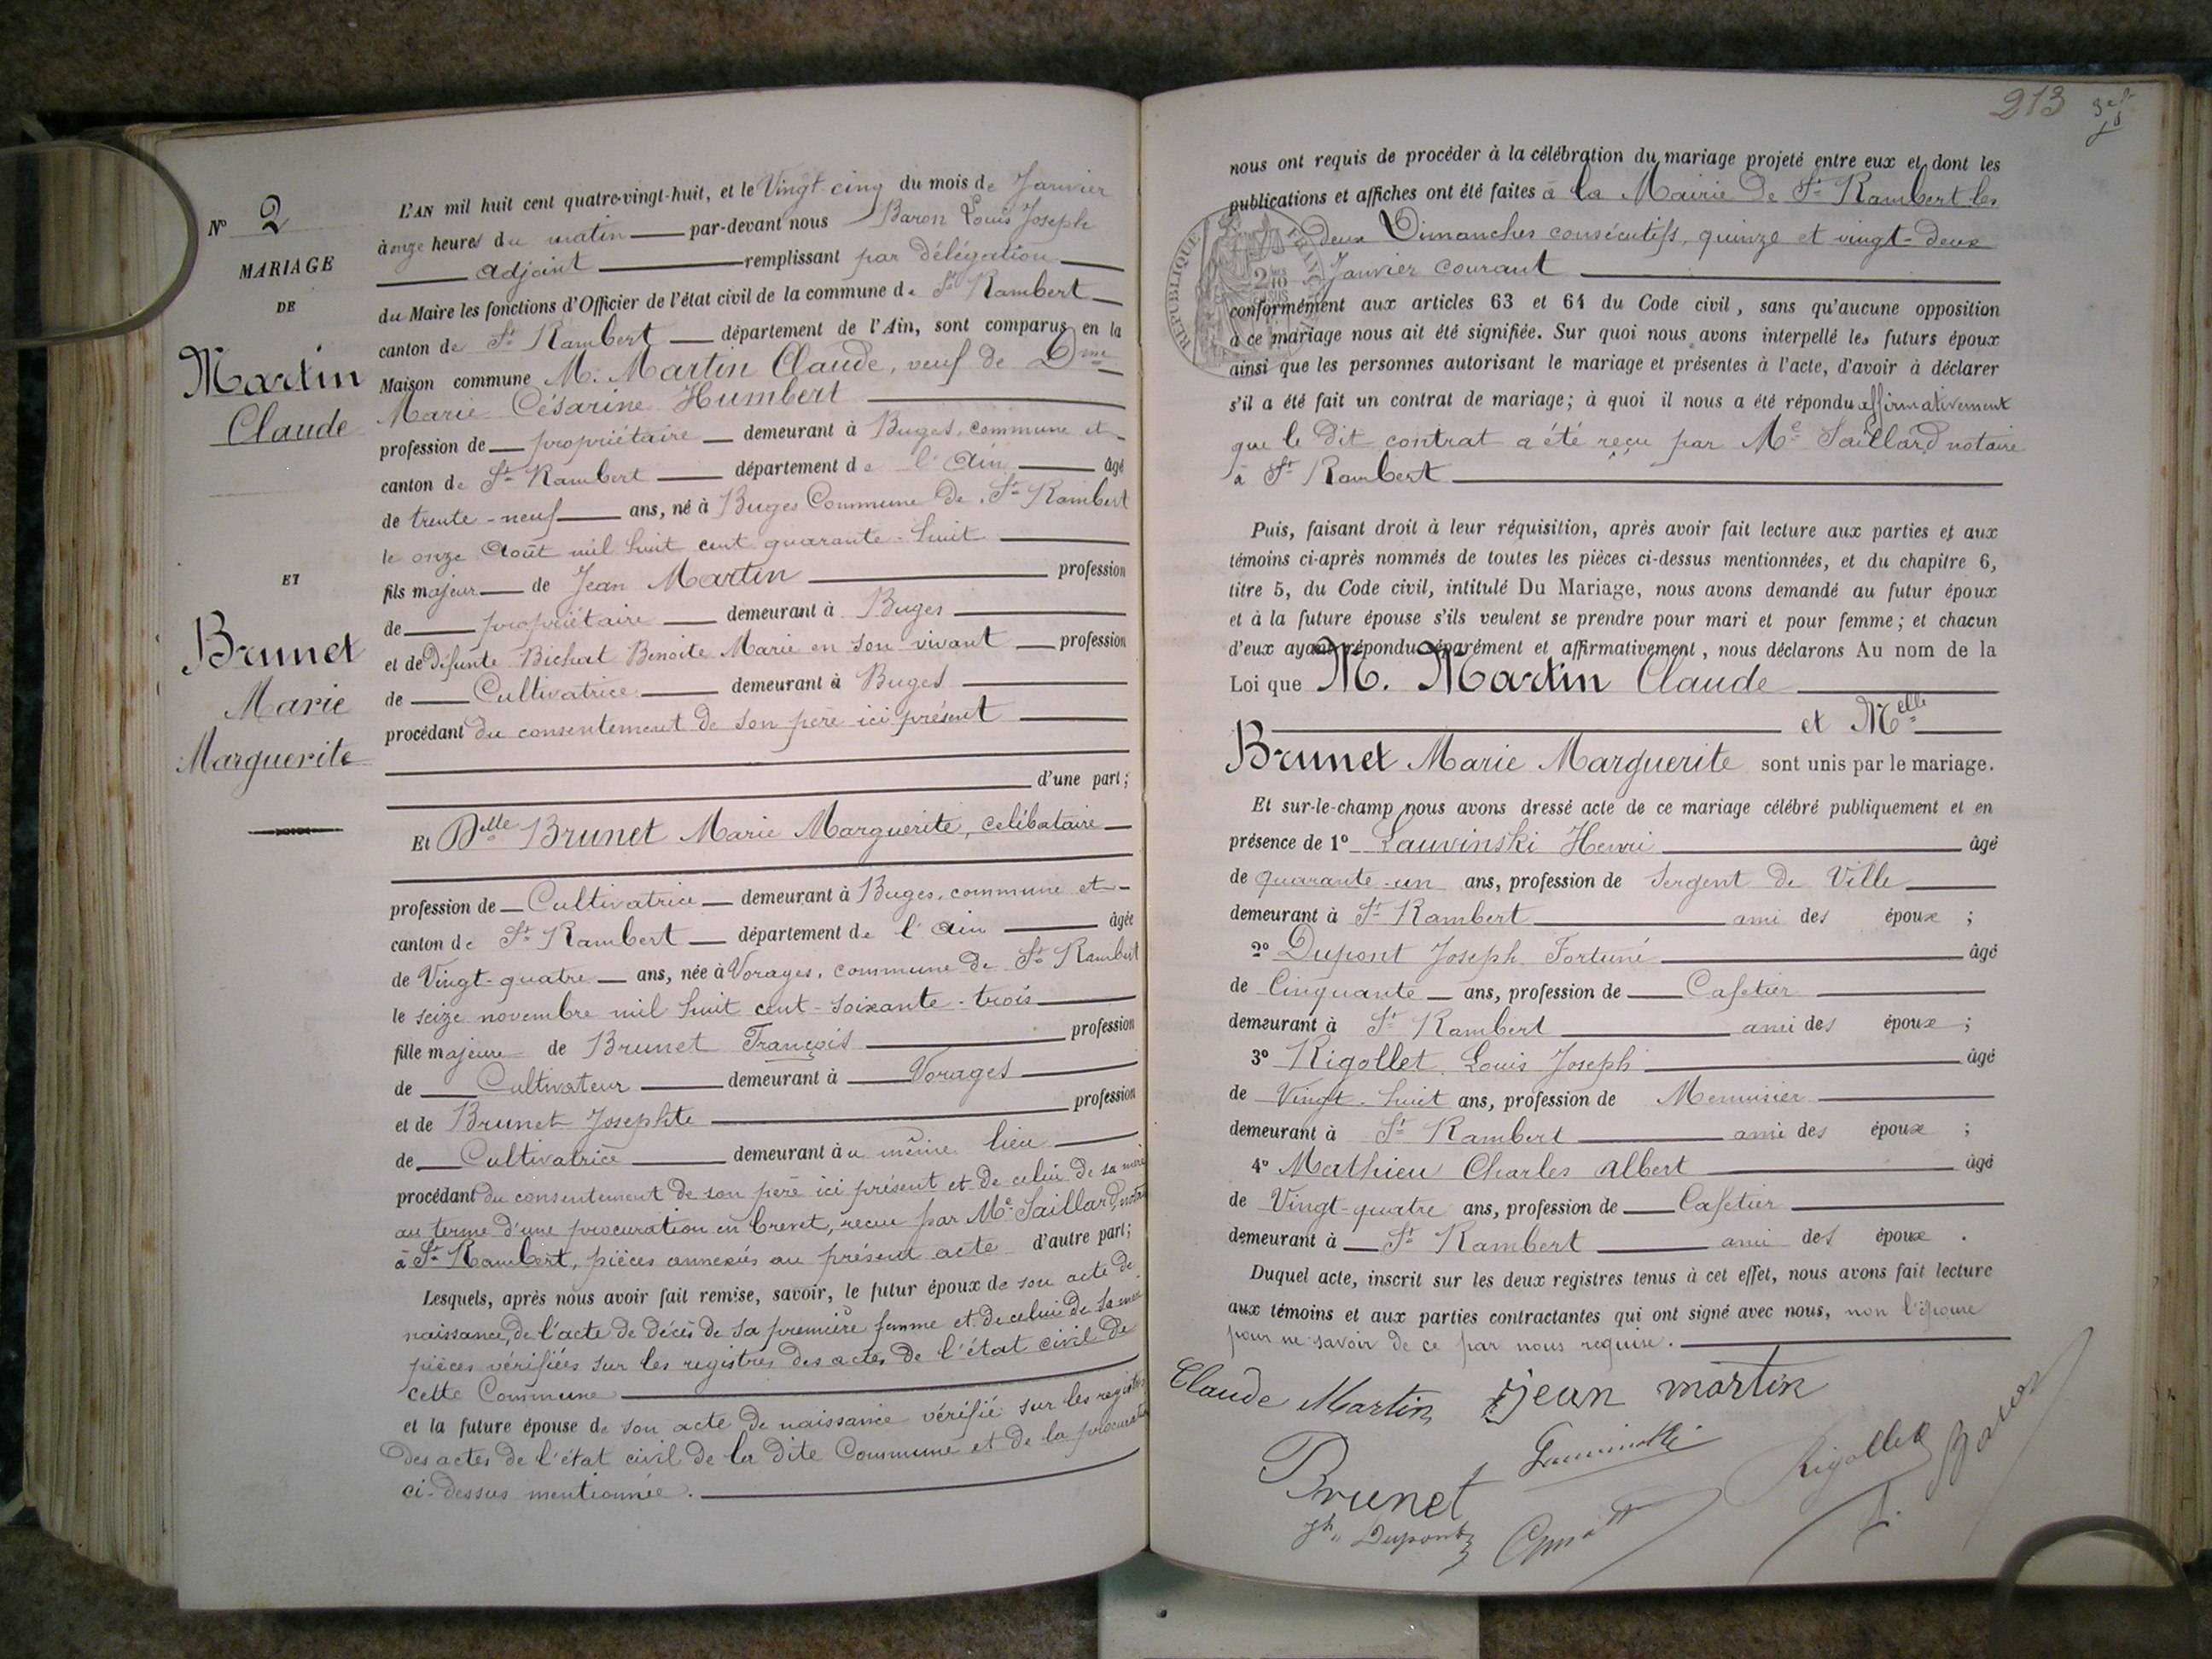 N° 2
MARIAGE
DE
Martin
Claude
ET
Brunet
Marie
Marguerite
L'AN mil huit cent quatre-vingt-huit, et le Vingt-cinq du mois de Janvier
à onze heures du matin par-devant nous Baron Louis Joseph
adjoint remplissant par délégation
du Maire les fonctions d'Officier de l'état civil de la commune de St Rambert
canton de St Rambert département de l'Ain, sont comparus en la
Maison commune M. Martin Claude, veuf de Dme
Marie Césarine Humbert
profession de propriétaire demeurant à Buges, commune et
canton de St Rambert département de l'Ain âgé
de trente-neuf ans, né à Buges Commune de St Rambert
le onze Août mil huit cent quarante-huit
fils majeur de Jean Martin profession
de propriétaire demeurant à Buges
et de Défunte Bichat Benoite Marie en son vivant profession
de Cultivatrice demeurant à Buges
procédant du consentement de son père ici présent
d'une part;
Et Delle Brunet Marie Marguerite, célibataire
profession de Cultivatrice demeurant à Buges, commune et
canton de St Rambert département de l'Ain âgée
de Vingt-quatre ans, née à Vorages, commune de St Rambert
le seize novembre mil huit cent-soixante-trois
fille majeure de Brunet François profession
de Cultivateur demeurant à Vorages
et de Brunet Josephte profession
de Cultivatrice demeurant au même lieu
procédant du consentement de son père ici présent et de celui de sa mère
au terme d'une procuration en brevet, reçue par Me Saillard, notaire
à St Rambert, pièces annexées au présent acte d'autre part;
Lesquels, après nous avoir fait remise, savoir, le futur époux de son acte de
naissance, de l'acte de décès de sa première femme et de celui de sa mère
pièces vérifiées sur les registres des actes de l'état civil de
cette Commune
et la future épouse de son acte de naissance vérifié sur les registres
des actes de l'état civil de la dite Commune et de la procuration
ci-dessus mentionnée.
213
nous ont requis de procéder à la célébration du mariage projeté entre eux et dont les
publications et affiches ont été faites à la Mairie de St Rambert les
deux Dimanches consécutifs, quinze et vingt-deux
Janvier courant
conformément aux articles 63 et 64 du Code civil, sans qu'aucune opposition
à ce mariage nous ait été signifiée. Sur quoi nous avons interpellé les futurs époux
ainsi que les personnes autorisant le mariage et présentes à l'acte, d'avoir à déclarer
s'il a été fait un contrat de mariage; à quoi il nous a été répondu affirmativement
que le dit contrat a été reçu par Me Saillard notaire
à St Rambert
Puis, faisant droit à leur réquisition, après avoir fait lecture aux parties et aux
témoins ci-après nommés de toutes les pièces ci-dessus mentionnées, et du chapitre 6,
titre 5, du Code civil, intitulé Du Mariage, nous avons demandé au futur époux
et à la future épouse s'ils veulent se prendre pour mari et pour femme; et chacun
d'eux ayant répondu séparément et affirmativement, nous déclarons Au nom de la
Loi que M. Martin Claude
et Melle
Brunet Marie Marguerite sont unis par le mariage.
Et sur-le-champ nous avons dressé acte de ce mariage célébré publiquement et en
présence de 1° Lauvinski Henri âgé
de quarante-un ans, profession de Sergent de Ville
demeurant à St Rambert ami des époux ;
2° Dupont Joseph Fortuné âgé
de Cinquante ans, profession de Cafetier
demeurant à St Rambert ami des époux ;
3° Rigollet Louis Joseph âgé
de Vingt-huit ans, profession de Menuisier
demeurant à St Rambert ami des époux ;
4° Mathieu Charles Albert âgé
de Vingt-quatre ans, profession de Cafetier
demeurant à St Rambert ami des époux .
Duquel acte, inscrit sur les deux registres tenus à cet effet, nous avons fait lecture
aux témoins et aux parties contractantes qui ont signé avec nous, non l'épouse
pour ne savoir de ce par nous requise.
Claude Martin jean martin
Brunet Rigollet Baron
Jh Dupont
RÉPUBLIQUE FRANÇ